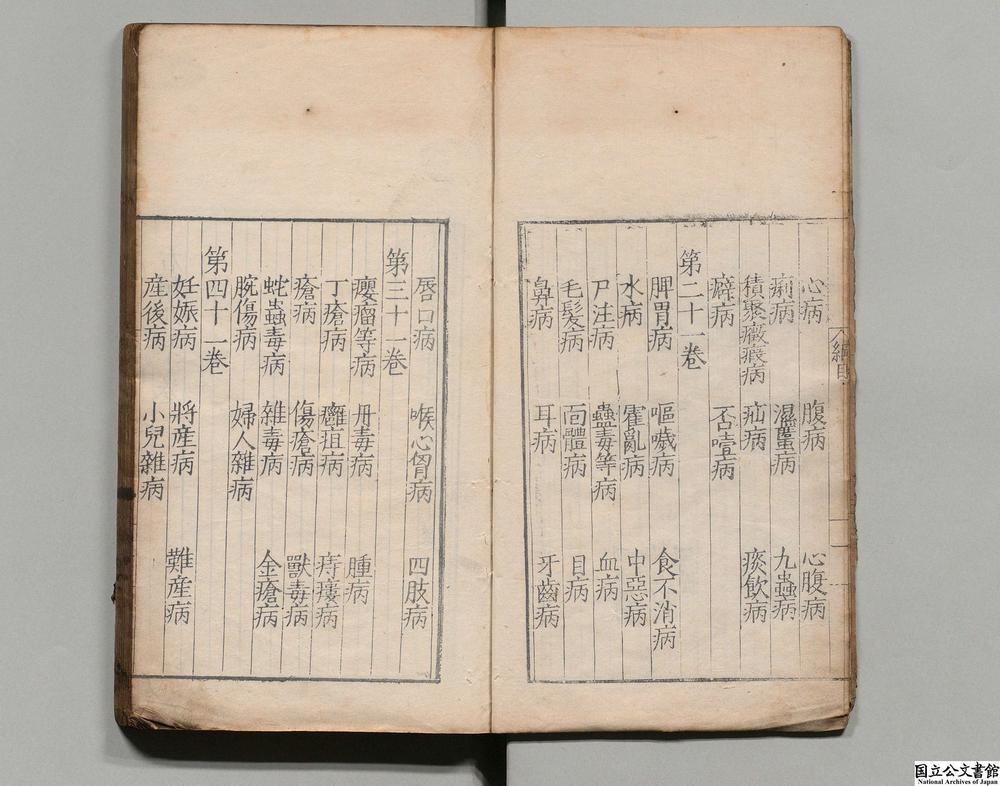 心病 腹病 心腹病
痢病 濕䘌病 九蟲病
積聚癥瘕病 疝病 痰飲病
癖病 否噎病
第二十一卷
脾胃病 嘔噦病 食不消病
水病 霍亂病 中惡病
尸注病 蠱毒等病 血病
毛髮病 面體病 目病
鼻病 耳病 牙齒病
唇口病 喉心胷病 四肢病
第三十一卷
癭瘤等病 丹毒病 腫病
丁瘡病 癰疽病 痔瘻病
瘡病 傷瘡病 獸毒病
蛇蟲毒病 雜毒病 金瘡病
腕傷病 婦人雜病
第四十一卷
妊娠病 將產病 難產病
產後病 小兒雜病
綱目
国立公文書館
National Archives of Japan